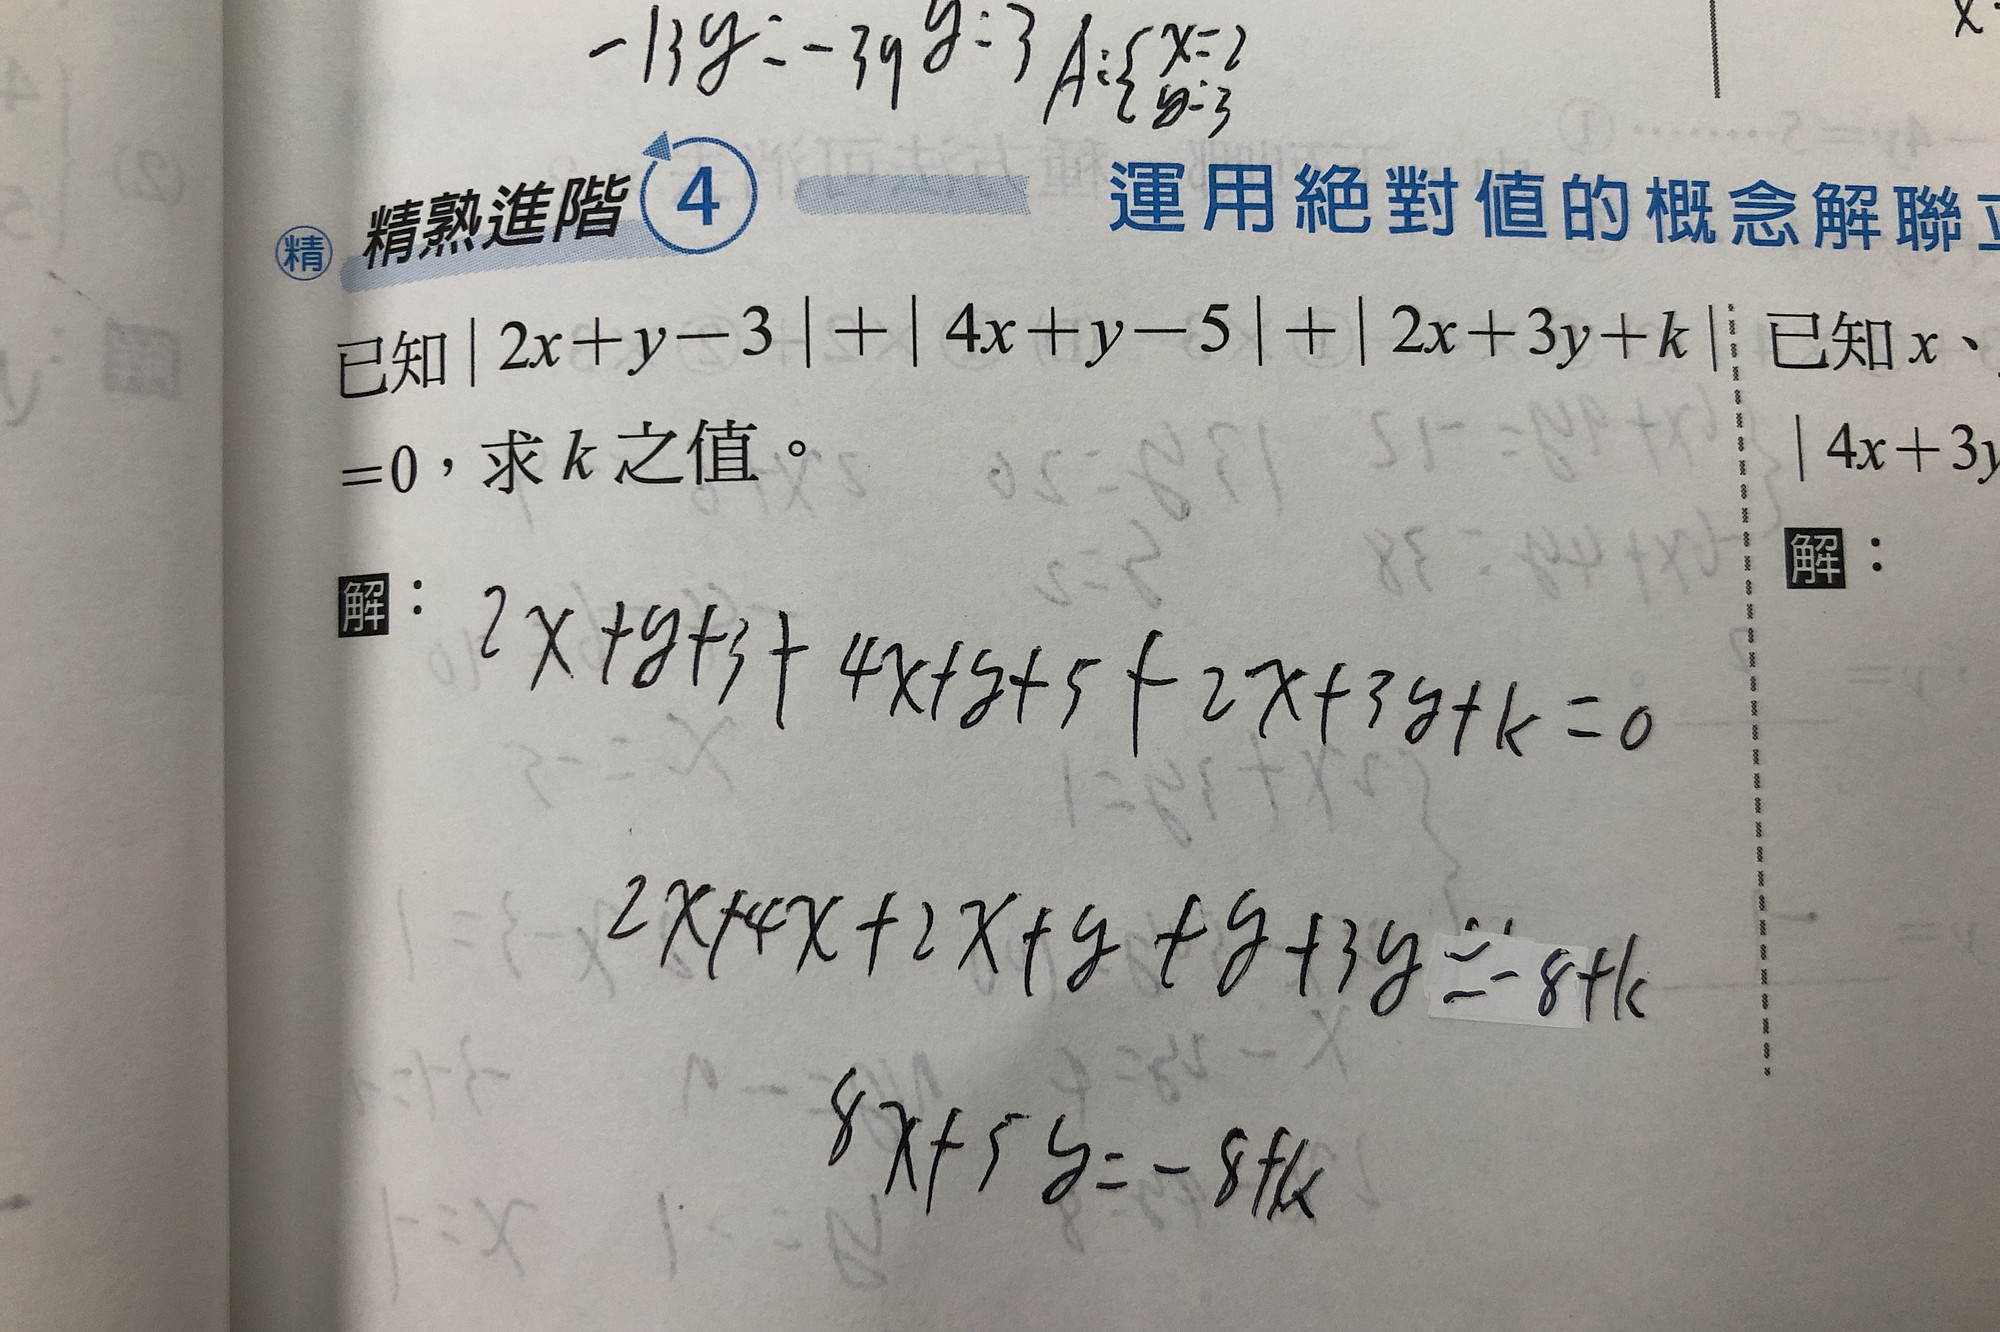 -13y=-39 y=3 A:{x=2
y=3
精 精熟進階 4 運用絕對值的概念解聯立
已知|2x+y-3|+|4x+y-5|+|2x+3y+k|
=0,求k之值。
解:2x+y+3+4x+y+5+2x+3y+k=0
2x+4x+2x+y+y+3y=-8+k
8x+5y=-8+k
已知x、
|4x+3y
解: